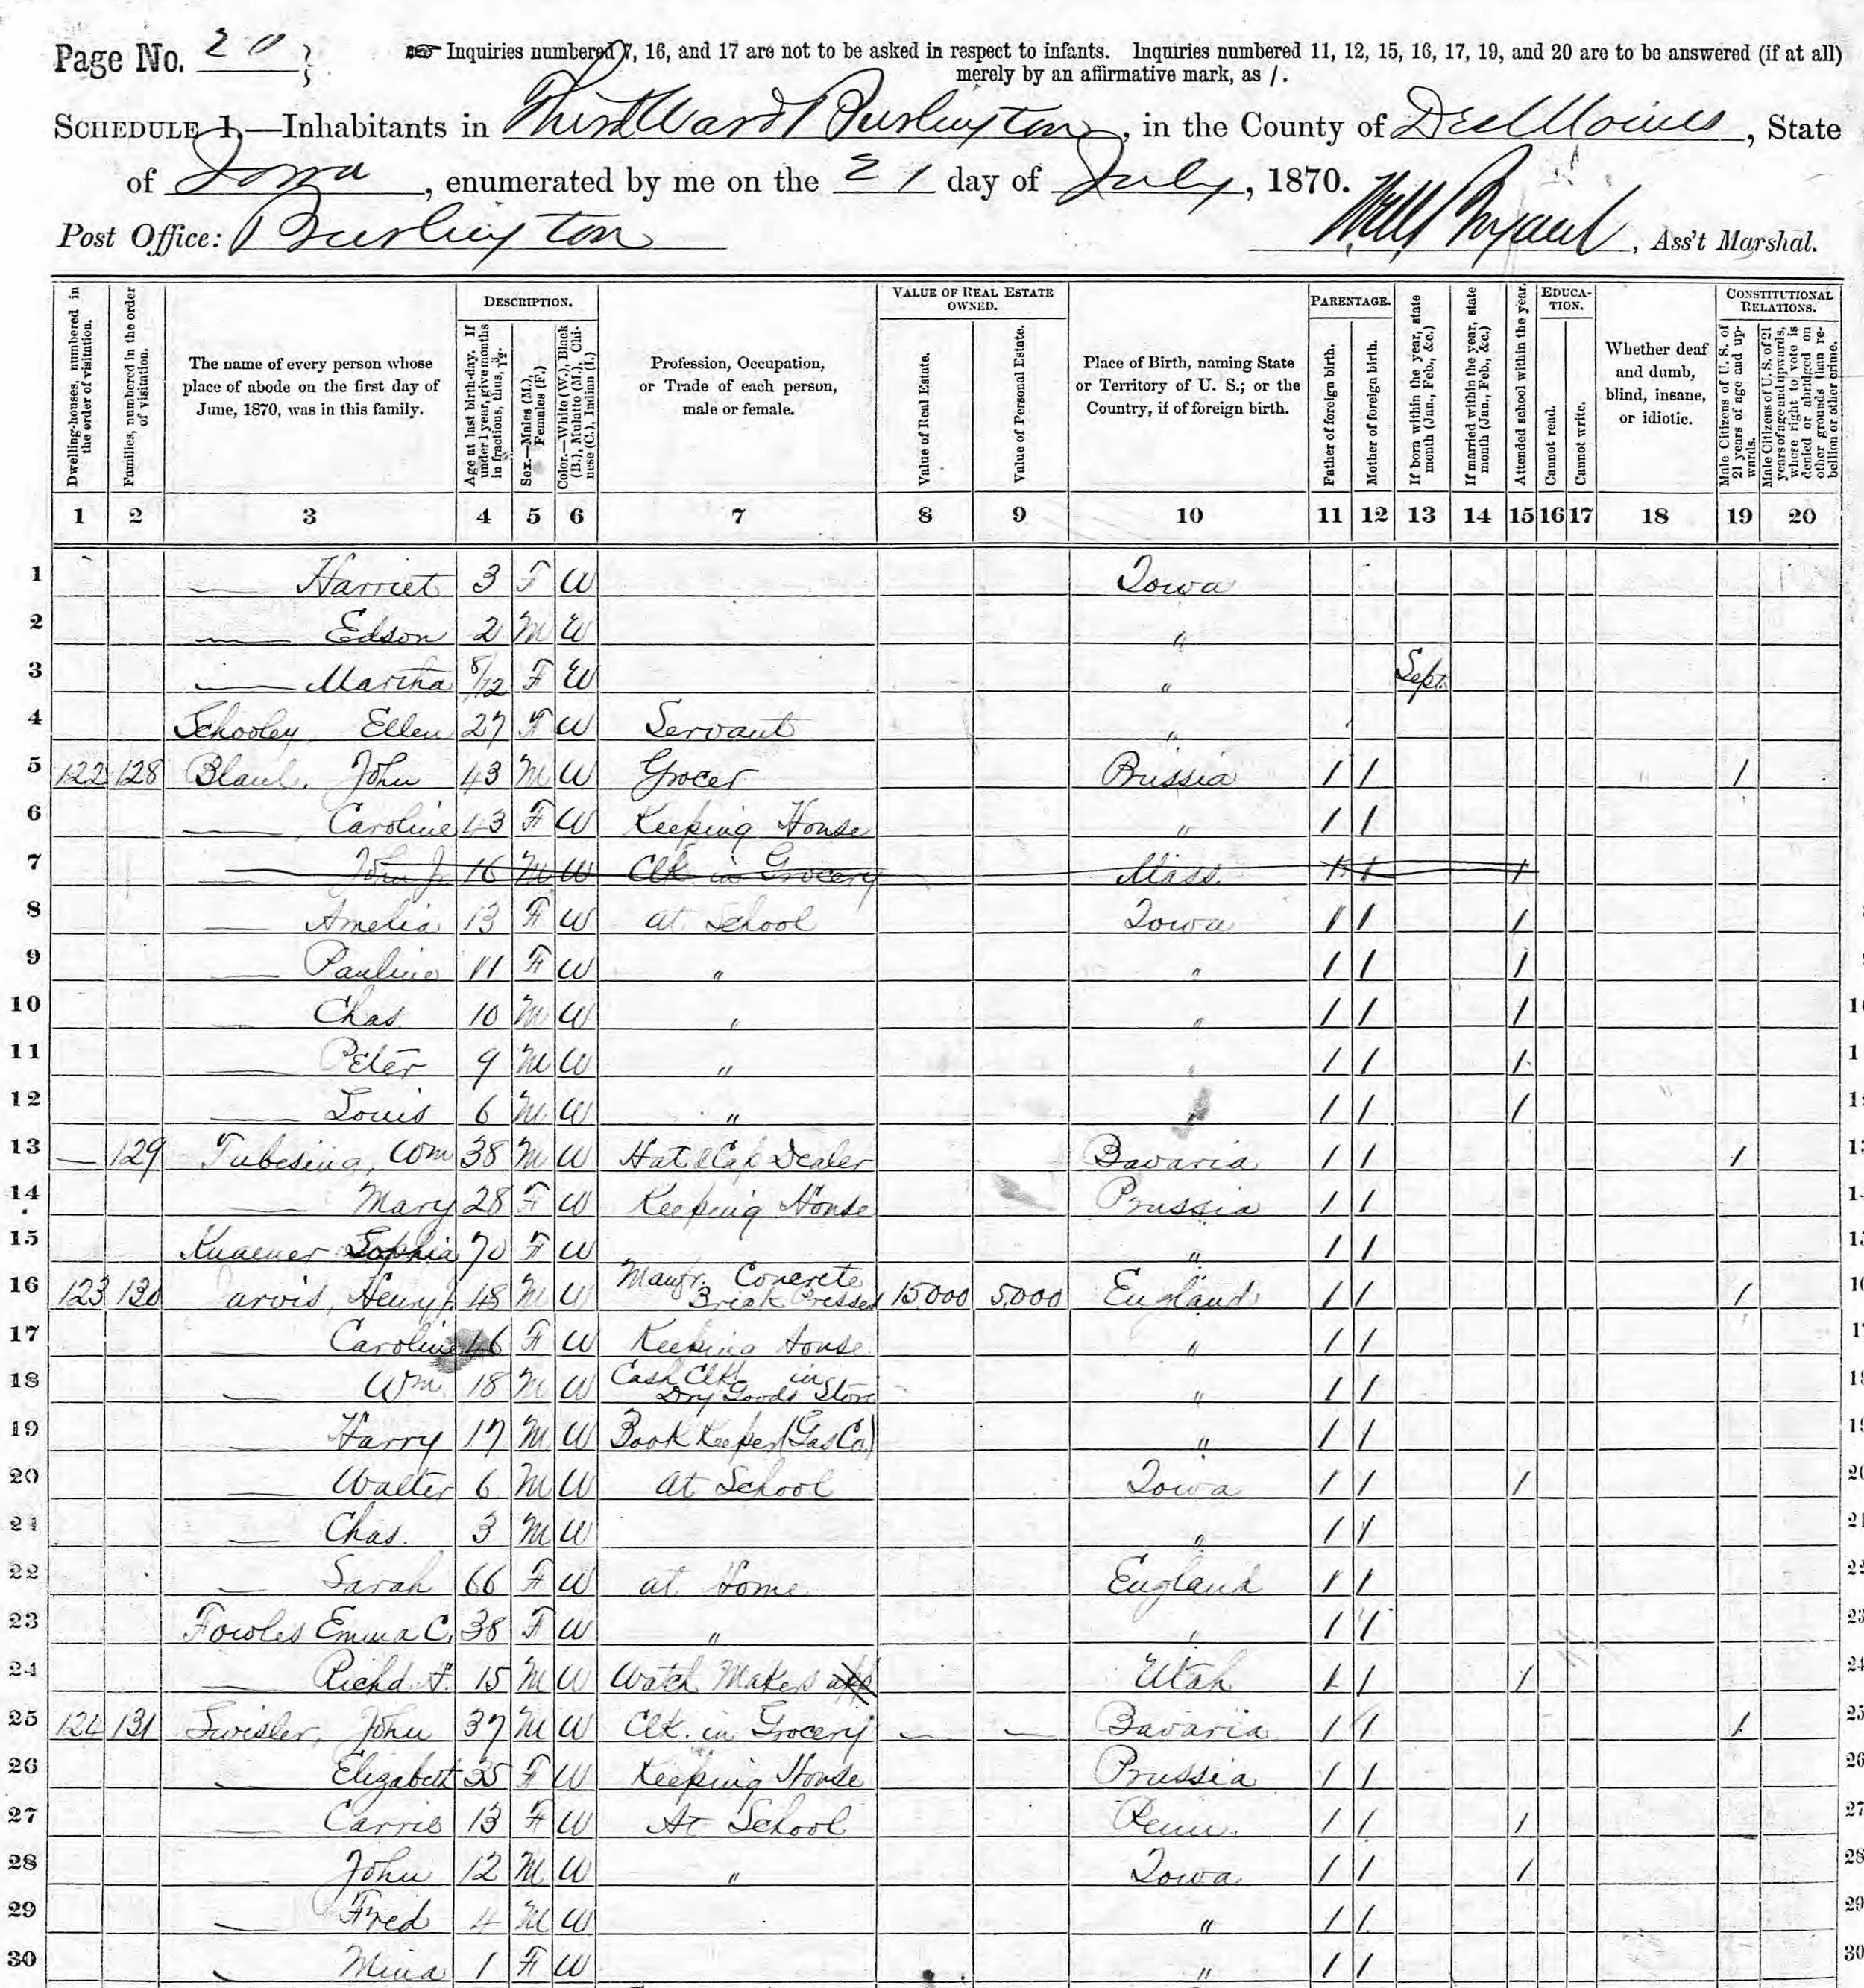 Page No. 20
Inquiries numbered 7, 16, and 17 are not to be asked in respect to infants. Inquiries numbered 11, 12, 15, 16, 17, 19, and 20 are to be answered (if at all)
merely by an affirmative mark, as /.
SCHEDULE 1.—Inhabitants in Third Ward Burlington, in the County of Des Moines, State
of Iowa, enumerated by me on the 21 day of July, 1870.
Post Office: Burlington Will Bryant, Ass't Marshal.
Dwelling-houses, numbered in the order of visitation.
Families, numbered in the order of visitation.
The name of every person whose place of abode on the first day of June, 1870, was in this family.
DESCRIPTION.
Age at last birth-day. If under 1 year, give months in fractions, thus, 3/12.
Sex.—Males (M.), Females (F.)
Color.—White (W.), Black (B.), Mulatto (M.), Chinese (C.), Indian (I.)
Profession, Occupation, or Trade of each person, male or female.
VALUE OF REAL ESTATE OWNED.
Value of Real Estate.
Value of Personal Estate.
Place of Birth, naming State or Territory of U. S.; or the Country, if of foreign birth.
PARENTAGE.
Father of foreign birth.
Mother of foreign birth.
If born within the year, state month (Jan., Feb., &c.)
If married within the year, state month (Jan., Feb., &c.)
Attended school within the year.
EDUCATION.
Cannot read.
Cannot write.
Whether deaf and dumb, blind, insane, or idiotic.
CONSTITUTIONAL RELATIONS.
Male Citizens of U. S. of 21 years of age and upwards.
Male Citizens of U. S. of 21 years of age and upwards, whose right to vote is denied or abridged on other grounds than rebellion or other crime.
1 2 3 4 5 6 7 8 9 10 11 12 13 14 15 16 17 18 19 20
1 — Harriet 3 F W Iowa
2 — Edson 2 M W "
3 — Martha 8/12 F W " Sept.
4 Schooley Ellen 27 F W Servant "
5 122 128 Blaul, John 43 M W Grocer Prussia / / /
6 — Caroline 43 F W Keeping House " / /
7 — John Jr 16 M W Clk in Grocery Mass. / / /
8 — Amelia 13 F W at School Iowa / / /
9 — Pauline 11 F W " " / / /
10 — Chas 10 M W " " / / /
11 — Peter 9 M W " " / / /
12 — Louis 6 M W " " / / /
13 — 129 Tubesing, Wm 38 M W Hat & Cap Dealer Bavaria / / /
14 Mary 28 F W Keeping House Prussia / /
15 Sophia 70 F W " / /
16 123 130 Jarvis, Henry 48 M W Manfr. Concrete Brick Presses 15000 5,000 England / / /
17 Caroline 46 F W Keeping House " / /
18 — Wm 18 M W Cash Clk in Dry Goods Store " / /
19 — Harry 17 M W Book Keeper (Gas Co) " / /
20 — Walter 6 M W at School Iowa / / /
21 — Chas. 3 M W " / /
22 — Sarah 66 F W at Home England / /
23 Fowles Emma C. 38 F W " " / /
24 — Richd 15 M W Watch Makers app Utah / / /
25 124 131 Swisler, John 37 M W Clk. in Grocery — — Bavaria / / /
26 — Elizabeth 35 F W Keeping House Prussia / /
27 — Carrie 13 F W At School Penn. / / /
28 — John 12 M W " Iowa / / /
29 — Fred 4 M W " / /
30 — Mina 1 F W " / /